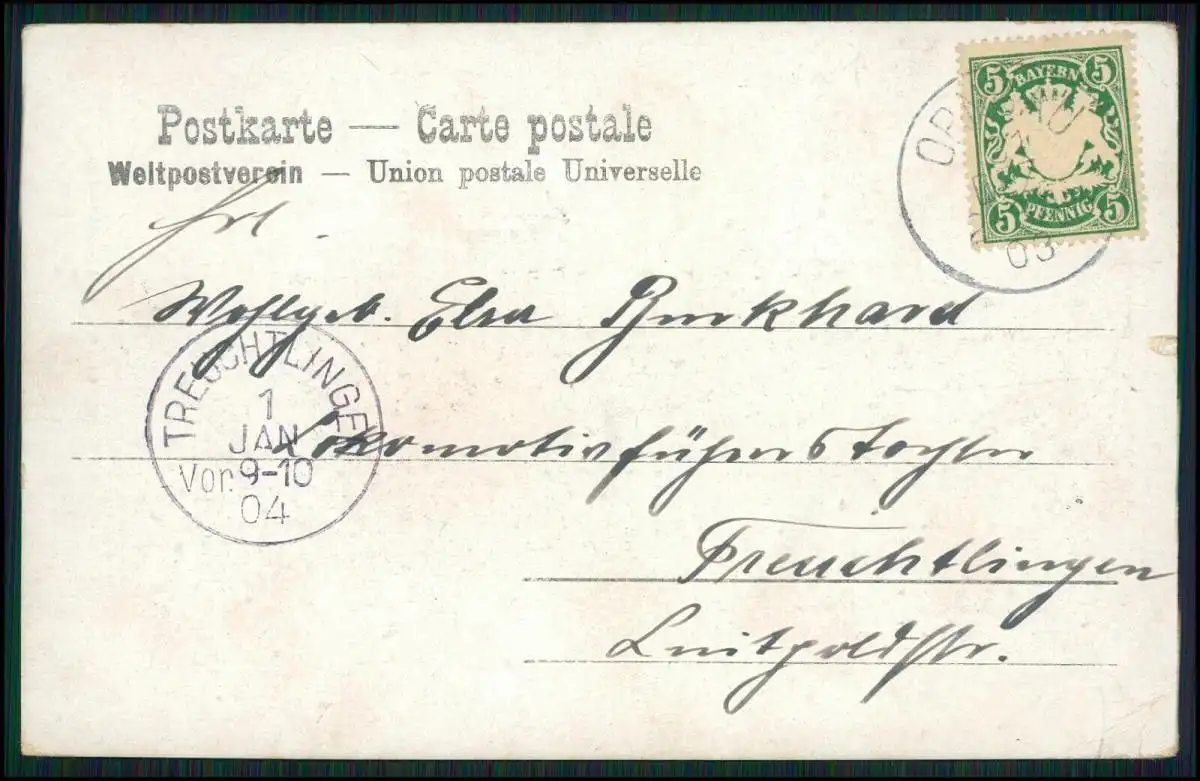 Postkarte — Carte postale
Weltpostverein — Union postale Universelle
5 BAYERN 5
5 PFENNIG 5
03
Frl.
Wohlgeb. Elsa Burkhard
TREUCHTLINGEN
1
JAN
Vor. 9-10
04
Lokomotivführerstochter
Treuchtlingen
Luitpoldstr.